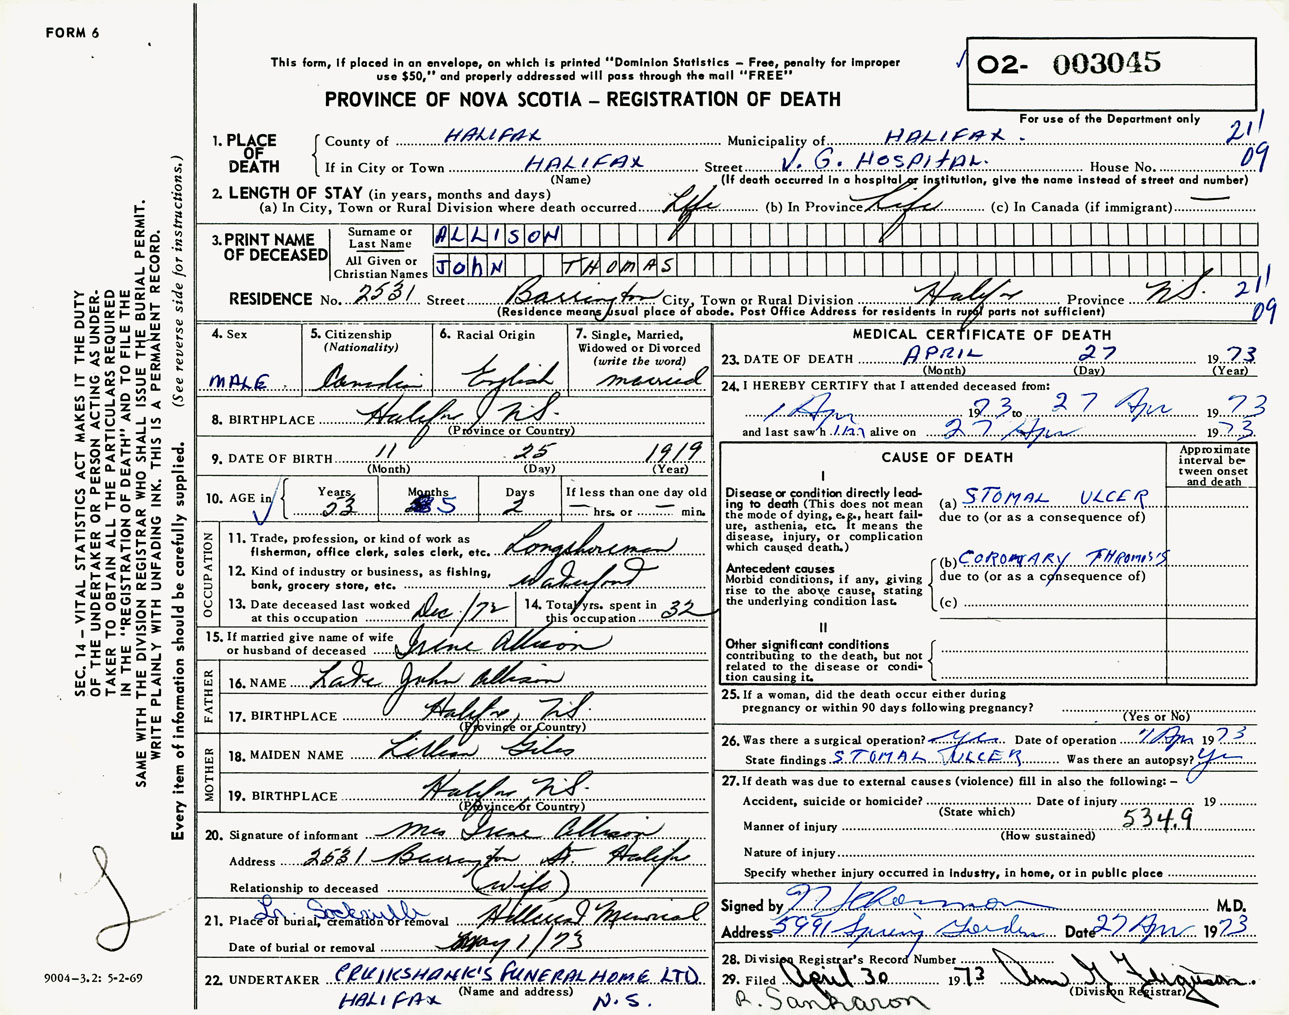 FORM 6
This form, if placed in an envelope, on which is printed "Dominion Statistics – Free, penalty for improper
use $50," and properly addressed will pass through the mail "FREE"
PROVINCE OF NOVA SCOTIA – REGISTRATION OF DEATH
02- 003045
For use of the Department only
1. PLACE OF DEATH
County of HALIFAX Municipality of HALIFAX. 211
If in City or Town HALIFAX Street V. G. HOSPITAL. House No. 09
(Name) (If death occurred in a hospital or institution, give the name instead of street and number)
2. LENGTH OF STAY (in years, months and days)
(a) In City, Town or Rural Division where death occurred Life (b) In Province Life (c) In Canada (if immigrant) —
3. PRINT NAME OF DECEASED
Surname or Last Name ALLISON
All Given or Christian Names JOHN THOMAS
RESIDENCE No. 2531 Street Barrington City, Town or Rural Division Halifax Province N.S. 211
(Residence means usual place of abode. Post Office Address for residents in rural parts not sufficient) 09
4. Sex MALE
5. Citizenship (Nationality) Canadian
6. Racial Origin English
7. Single, Married, Widowed or Divorced (write the word) married
8. BIRTHPLACE Halifax, N.S.
(Province or Country)
9. DATE OF BIRTH 11 25 1919
(Month) (Day) (Year)
10. AGE in Years 53 Months 5 Days 2 If less than one day old — hrs. or — min.
OCCUPATION
11. Trade, profession, or kind of work as
fisherman, office clerk, sales clerk, etc. Longshoreman
12. Kind of industry or business, as fishing,
bank, grocery store, etc. Waterfront
13. Date deceased last worked at this occupation Dec./72
14. Total yrs. spent in this occupation 32
15. If married give name of wife
or husband of deceased Irene Allison
FATHER
16. NAME Late John Allison
17. BIRTHPLACE Halifax, N.S.
(Province or Country)
MOTHER
18. MAIDEN NAME Lillian Giles
19. BIRTHPLACE Halifax N.S.
(Province or Country)
20. Signature of informant Mrs Irene Allison
Address 2531 Barrington St. Halifax
Relationship to deceased (Wife)
21. Place of burial, cremation or removal Lr. Sackville Hillcrest Memorial
Date of burial or removal May 1/73
22. UNDERTAKER CRUIKSHANK'S FUNERAL HOME LTD.
(Name and address)
HALIFAX N.S.
MEDICAL CERTIFICATE OF DEATH
23. DATE OF DEATH APRIL 27 1973
(Month) (Day) (Year)
24. I HEREBY CERTIFY that I attended deceased from:
1 Apr 1973 to 27 Apr 1973
and last saw him alive on 27 Apr 1973
CAUSE OF DEATH
Approximate interval between onset and death
I
Disease or condition directly lead-
ing to death (This does not mean
the mode of dying, e.g., heart fail-
ure, asthenia, etc. It means the
disease, injury, or complication
which caused death.)
(a) STOMAL ULCER
due to (or as a consequence of)
Antecedent causes
Morbid conditions, if any, giving
rise to the above cause, stating
the underlying condition last.
(b) CORONARY THROMOSIS
due to (or as a consequence of)
(c)
II
Other significant conditions
contributing to the death, but not
related to the disease or condi-
tion causing it.
25. If a woman, did the death occur either during
pregnancy or within 90 days following pregnancy?
(Yes or No)
26. Was there a surgical operation? yes Date of operation 11 Apr 1973
State findings STOMAL ULCER Was there an autopsy? Yes
27. If death was due to external causes (violence) fill in also the following: –
Accident, suicide or homicide? Date of injury 19
(State which)
Manner of injury 534.9
(How sustained)
Nature of injury
Specify whether injury occurred in industry, in home, or in public place
Signed by M.D.
Address 5991 Spring Garden Date 27 Apr 1973
28. Division Registrar's Record Number
29. Filed April 30 1973 Ann G Ferguson.
(Division Registrar)
R. Sankaron
SEC. 14 – VITAL STATISTICS ACT MAKES IT THE DUTY
OF THE UNDERTAKER OR PERSON ACTING AS UNDER-
TAKER TO OBTAIN ALL THE PARTICULARS REQUIRED
IN THE "REGISTRATION OF DEATH" AND TO FILE THE
SAME WITH THE DIVISION REGISTRAR WHO SHALL ISSUE THE BURIAL PERMIT.
WRITE PLAINLY WITH UNFADING INK. THIS IS A PERMANENT RECORD.
Every item of information should be carefully supplied. (See reverse side for instructions.)
9004-3.2: 5-2-69